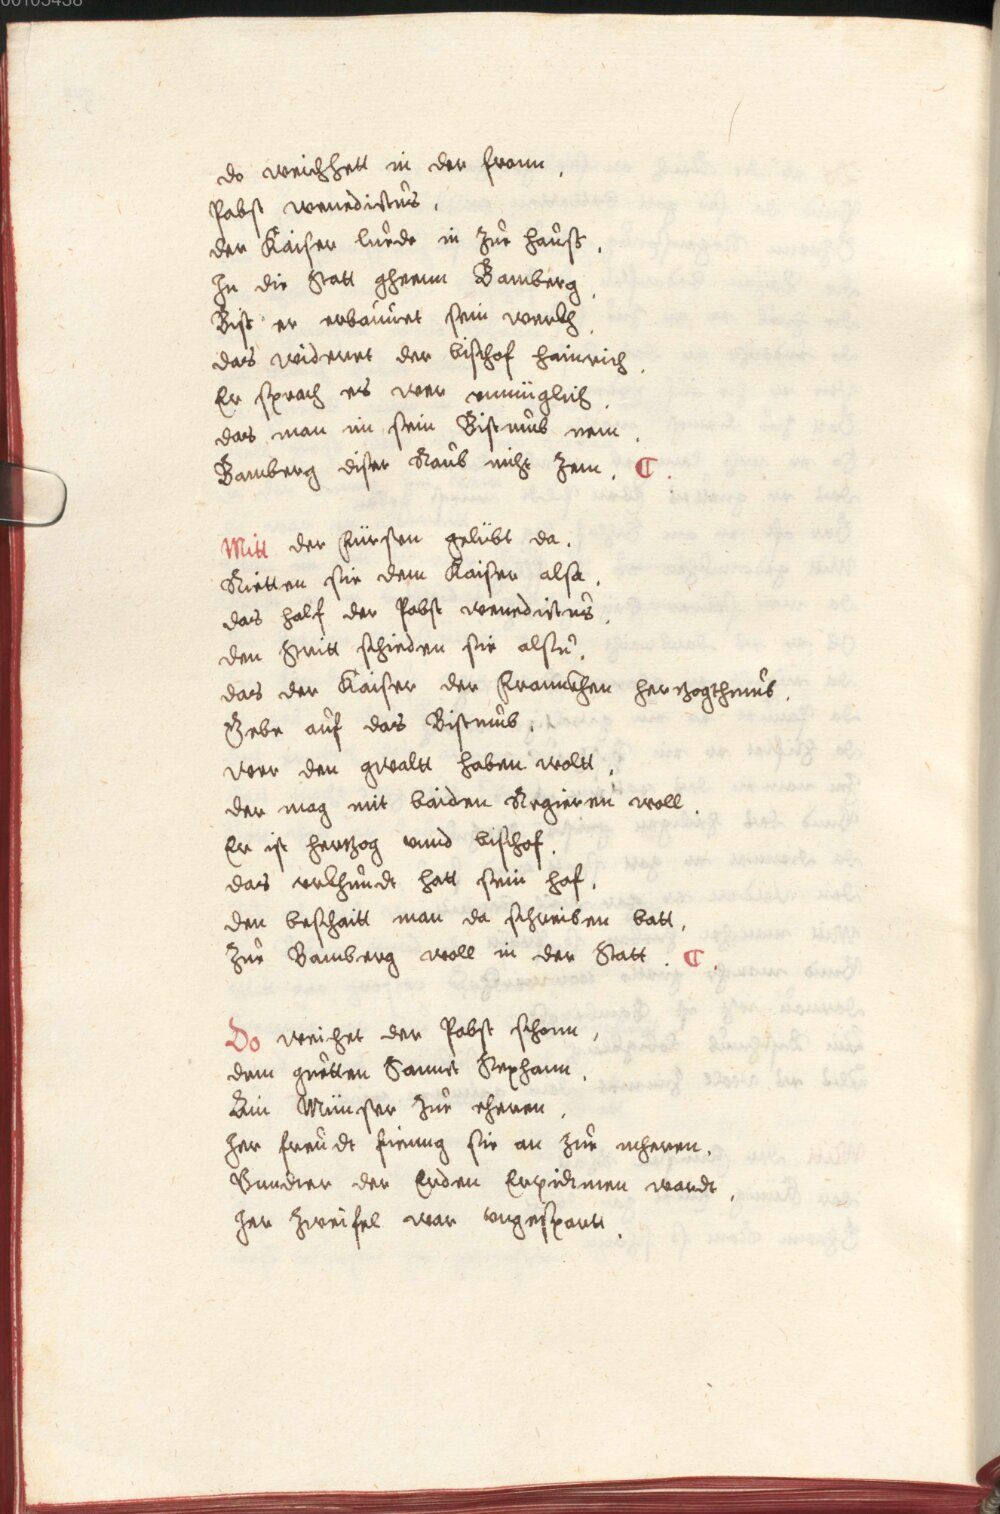 00103438
do weichett in der fronn,
Pabst wenedictus.
der Kaiser luede in zue hauß,
In die Statt gherun Bamberg,
Bist er erbauuet sein werkh,
das widerret der bischof hainrich,
Er sprach es wer unmüglich,
das man im sein Bistumb nem,
Bamberg diser Raub niht zem, C.
Mitt der fürsten gelübt da.
Rietten sie dem Kaiser alsa,
das half der Pabst wenedictus,
den Stritt schieden sie alsu,
das der Kaiser der Frannckhen hertzogthumb,
Gebe auf das Bistumb,
wer den gwaltt haben woltt,
der mag mit baiden Regieren woll,
Er ist hertzog unnd bischof,
das urkhundt hatt sein hof,
den beschaitt man da schreiben batt,
Zue Bamberg woll in der Statt. C.
Do weichet der Pabst schonn,
dem guetten Sannct Stephann,
Ain Münster zue eheren,
her freudt fienng sie an zue meheren,
Unnder der Erden Erpidmen wardt,
her zweifel war ungespartt,